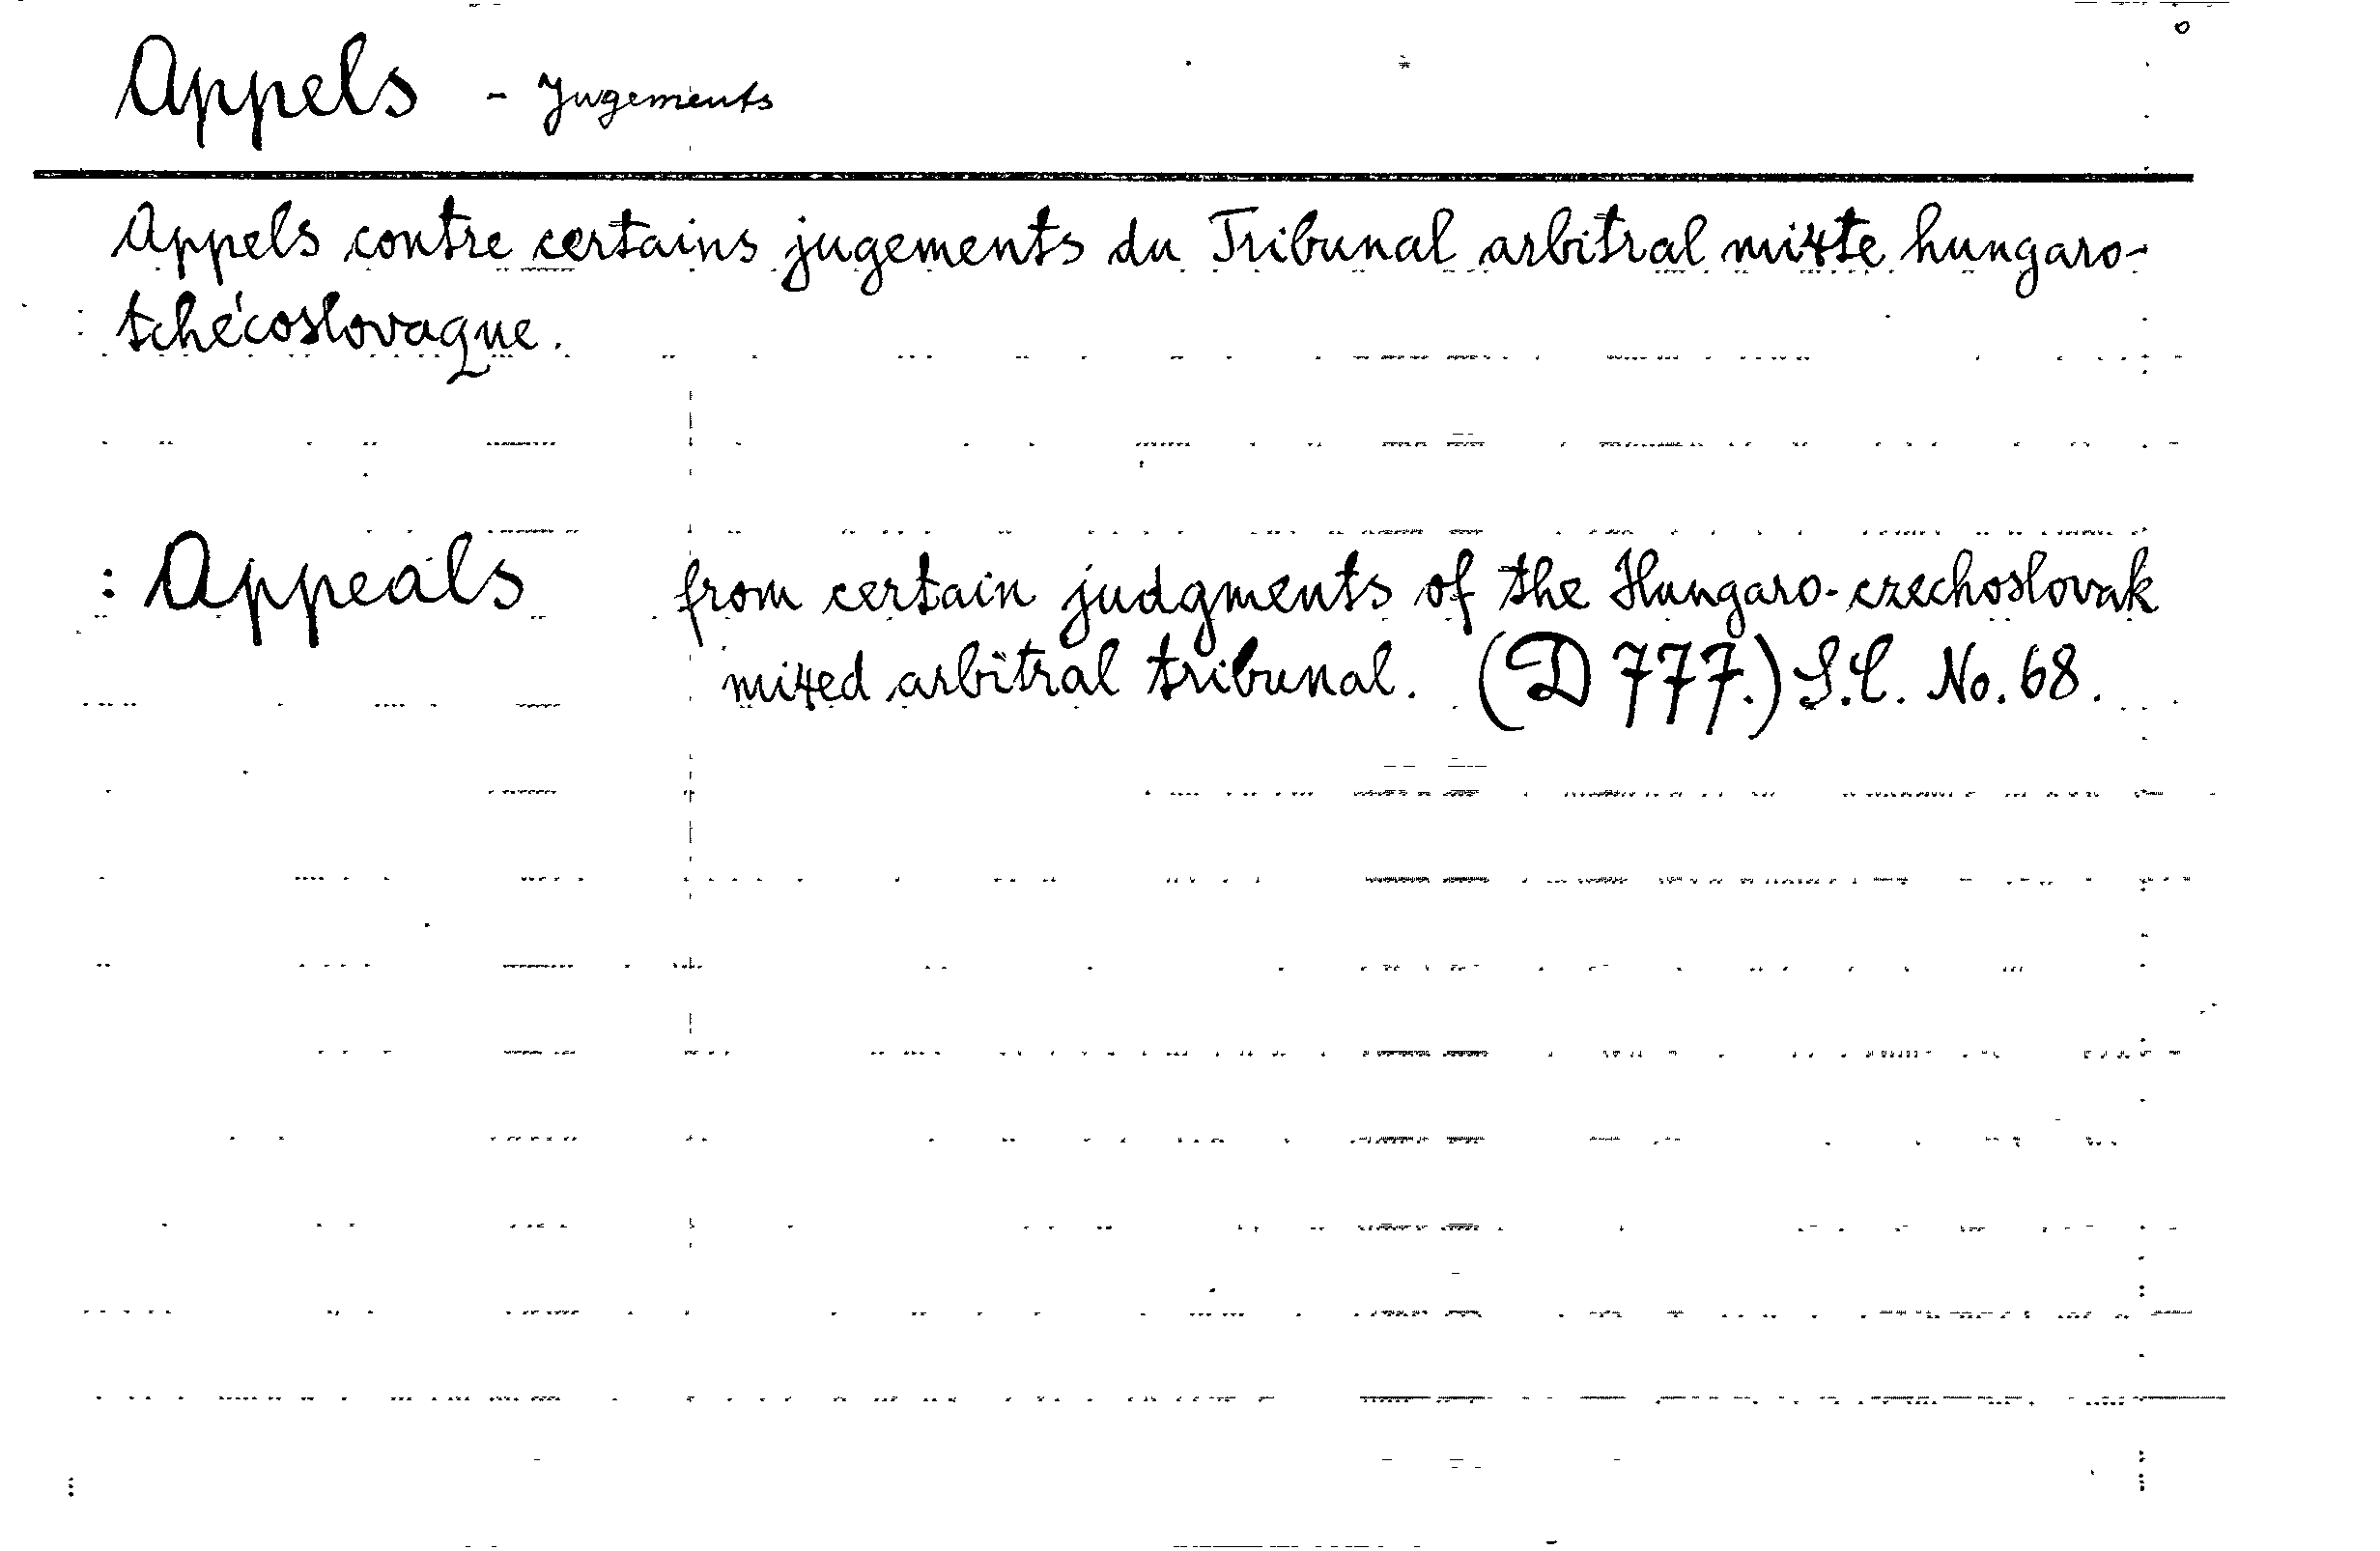 Appels - Jugements
Appels contre certains jugements du Tribunal arbitral mixte hungaro-
tchécoslovaque.
: Appeals from certain judgments of the Hungaro-czechoslovak
mixed arbitral tribunal. (D 777.) S.C. No. 68.